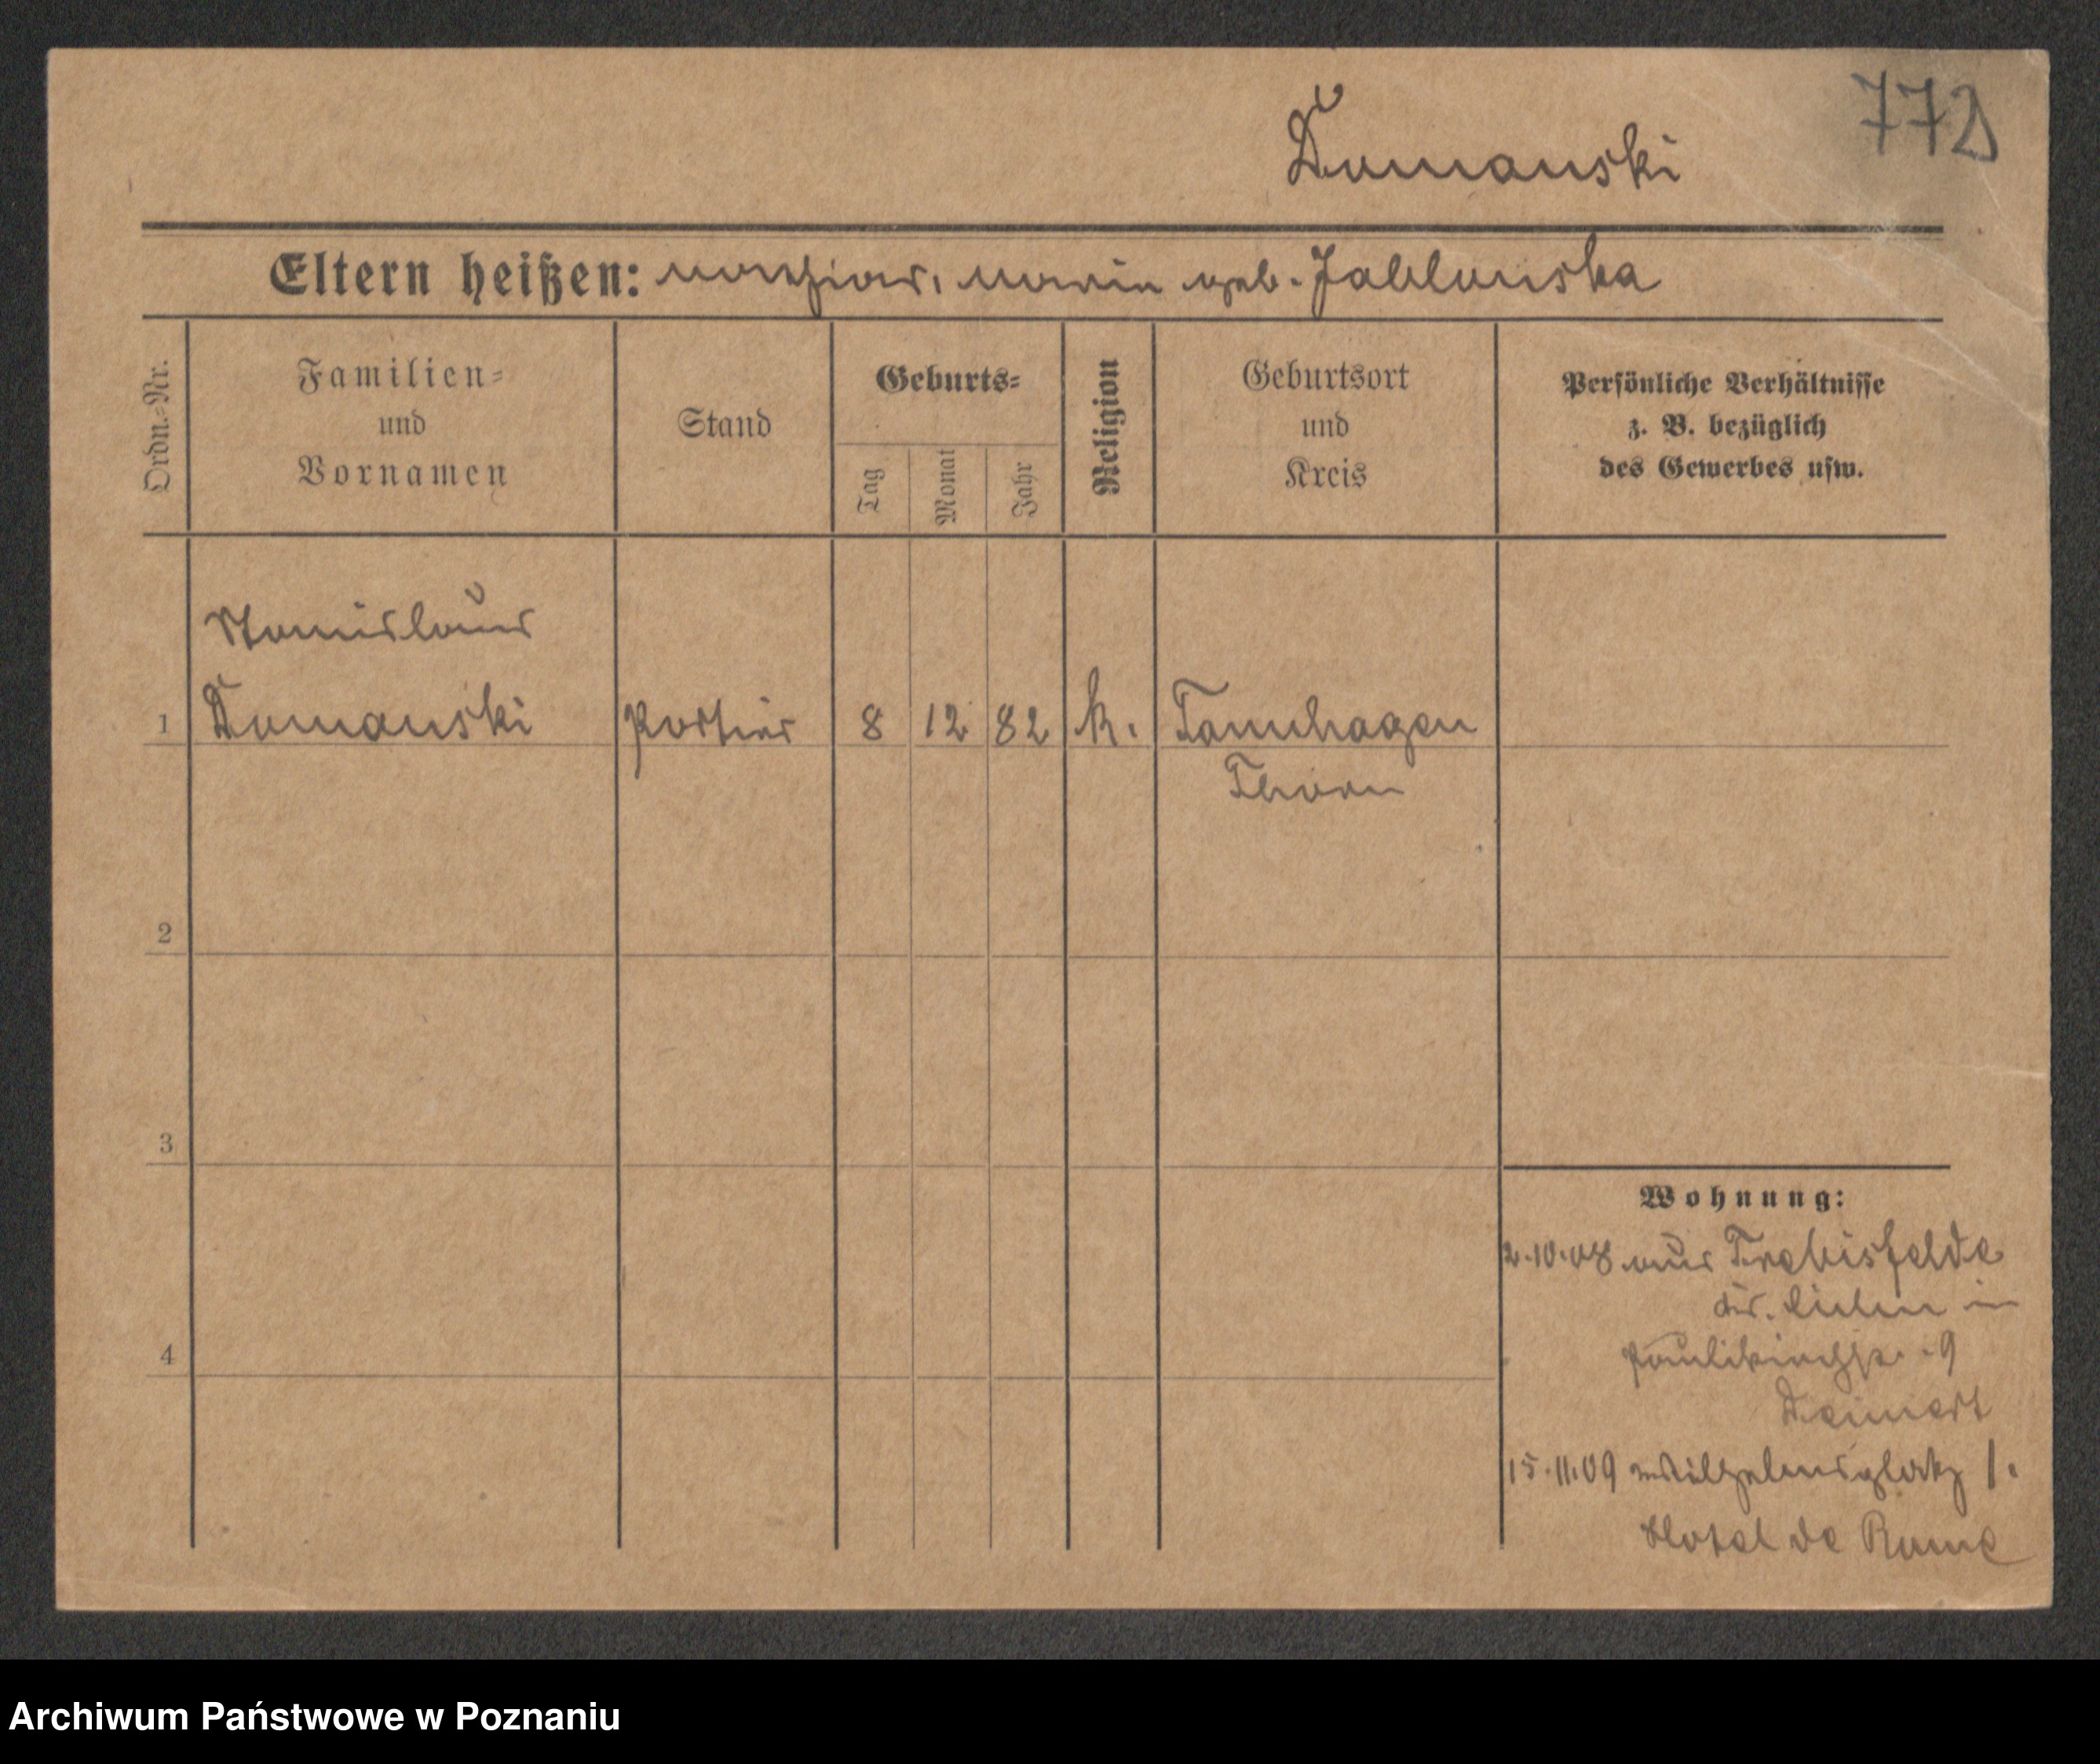 772
Domanski
Eltern heißen: Mathias, Marie geb. Jablonska
Ordn.=Nr.
Familien=
und
Vornamen
Stand
Geburts=
Tag
Monat
Jahr
Religion
Geburtsort
und
Kreis
Persönliche Verhältnisse
z. B. bezüglich
des Gewerbes usw.
Stanislaus
1 Domanski Portier 8 12 82 k. Tannhagen
Thorn
2
3
4
Wohnung:
2.10.08 aus Trebisfelde
in
Paulikirchstr. 9
15.11.09 Wilhelmsplatz 1.
Hotel de Rome
Archiwum Państwowe w Poznaniu